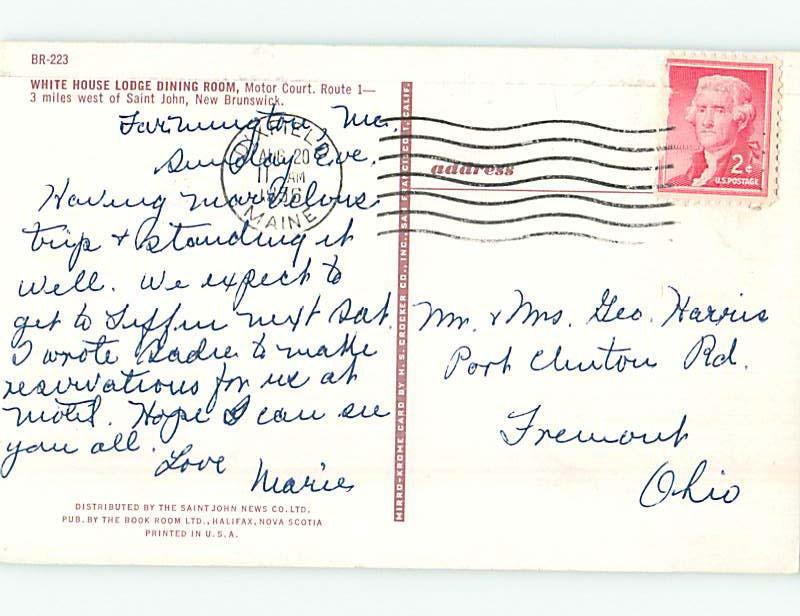 BR-223
WHITE HOUSE LODGE DINING ROOM, Motor Court. Route 1—
3 miles west of Saint John, New Brunswick.
Farmington, Me.
Sunday Eve.
Having marvelous
trip & standing it
well. We expect to
get to Tiffin next Sat.
I wrote Sadie to make
reservations for us at
motel. Hope I can see
you all.
Love
Marie
DISTRIBUTED BY THE SAINT JOHN NEWS CO. LTD.
PUB. BY THE BOOK ROOM LTD., HALIFAX, NOVA SCOTIA
PRINTED IN U.S.A.
MIRRO-KROME CARD BY H. S. CROCKER CO., INC., SAN FRANCISCO, CALIF.
AUG 20
11 AM
MAINE
address
2¢
U.S. POSTAGE
Mr. & Mrs. Geo. Harris
Port Clinton Rd.
Fremont
Ohio